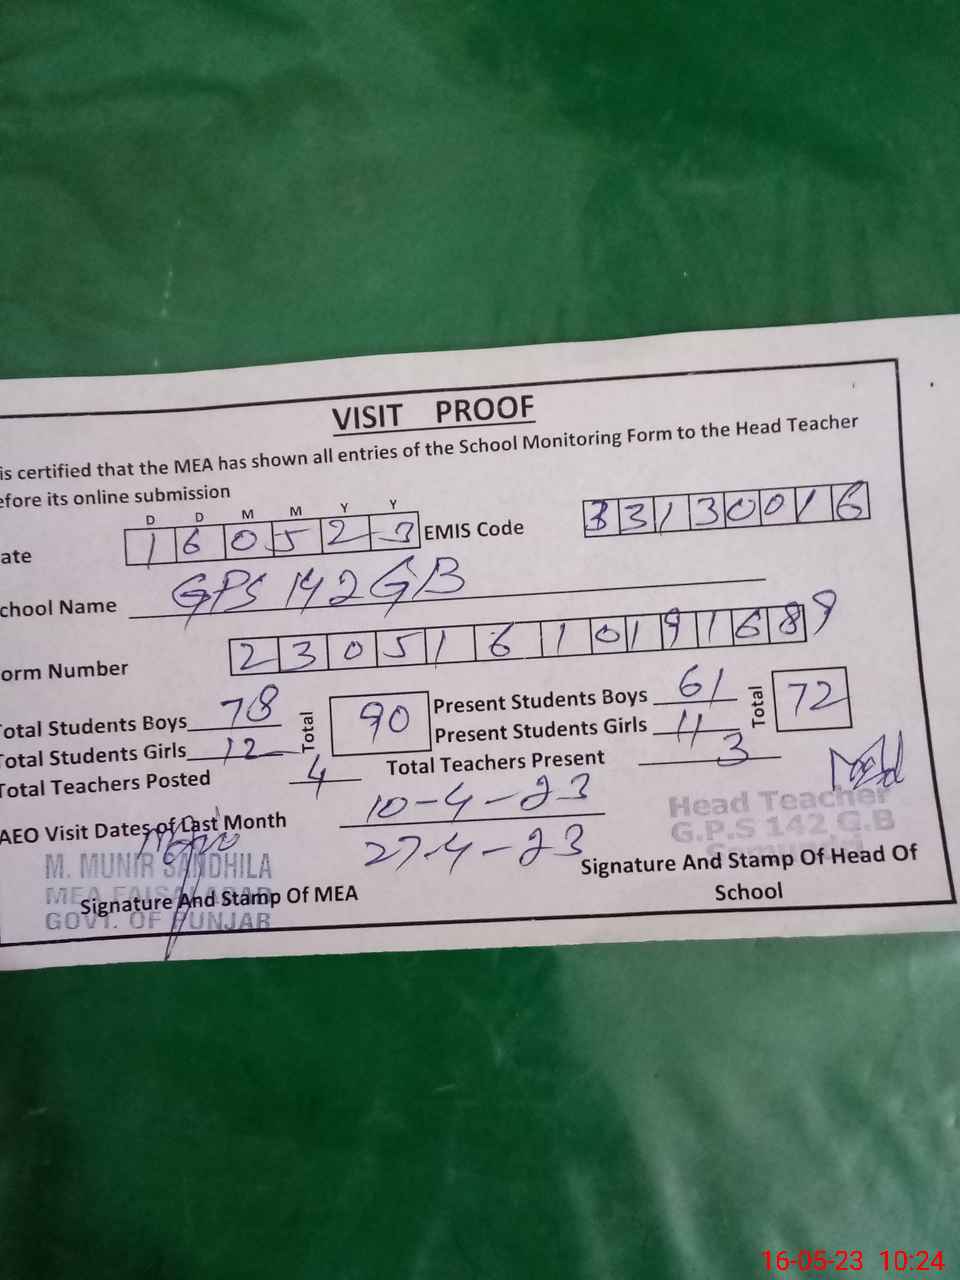 VISIT PROOF
is certified that the MEA has shown all entries of the School Monitoring Form to the Head Teacher
efore its online submission
D D M M Y Y
ate 1 6 0 5 2 3 EMIS Code 3 3 1 3 0 0 1 6
chool Name GPS 142 GB
orm Number 2 3 0 5 1 6 1 0 1 9 1 6 8 9
Total Students Boys 78 Total 90 Present Students Boys 61 Total 72
Total Students Girls 12 Present Students Girls 11
Total Teachers Posted 4 Total Teachers Present 3
AEO Visit Dates of Last Month 10-4-23
27-4-23
Head Teacher
G.P.S 142 G.B
M. MUNIR SANDHILA
MEA FAISALABAD
GOVT. OF PUNJAB
Signature And Stamp Of MEA
Signature And Stamp Of Head Of
School
16-05-23 10:24